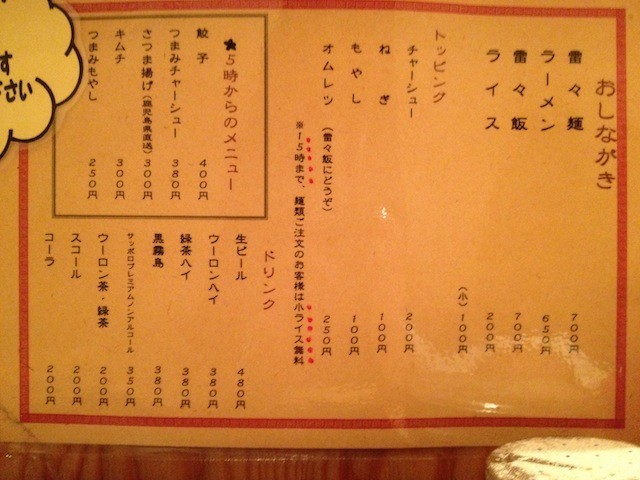 おしながき
雷々麺 700円
ラーメン 650円
雷々飯 700円
ライス 200円
(小) 100円
トッピング
チャーシュー 200円
ねぎ 100円
もやし 100円
オムレツ (雷々飯にどうぞ) 250円
※15時まで、麺類ご注文のお客様は小ライス無料
★5時からのメニュー
餃子 400円
つまみチャーシュー 380円
さつま揚げ(鹿児島県直送) 300円
キムチ 300円
つまみもやし 250円
ドリンク
生ビール 480円
ウーロンハイ 380円
緑茶ハイ 380円
黒霧島 380円
サッポロプレミアムノンアルコール 350円
ウーロン茶・緑茶 200円
スコール 200円
コーラ 200円
す
さい